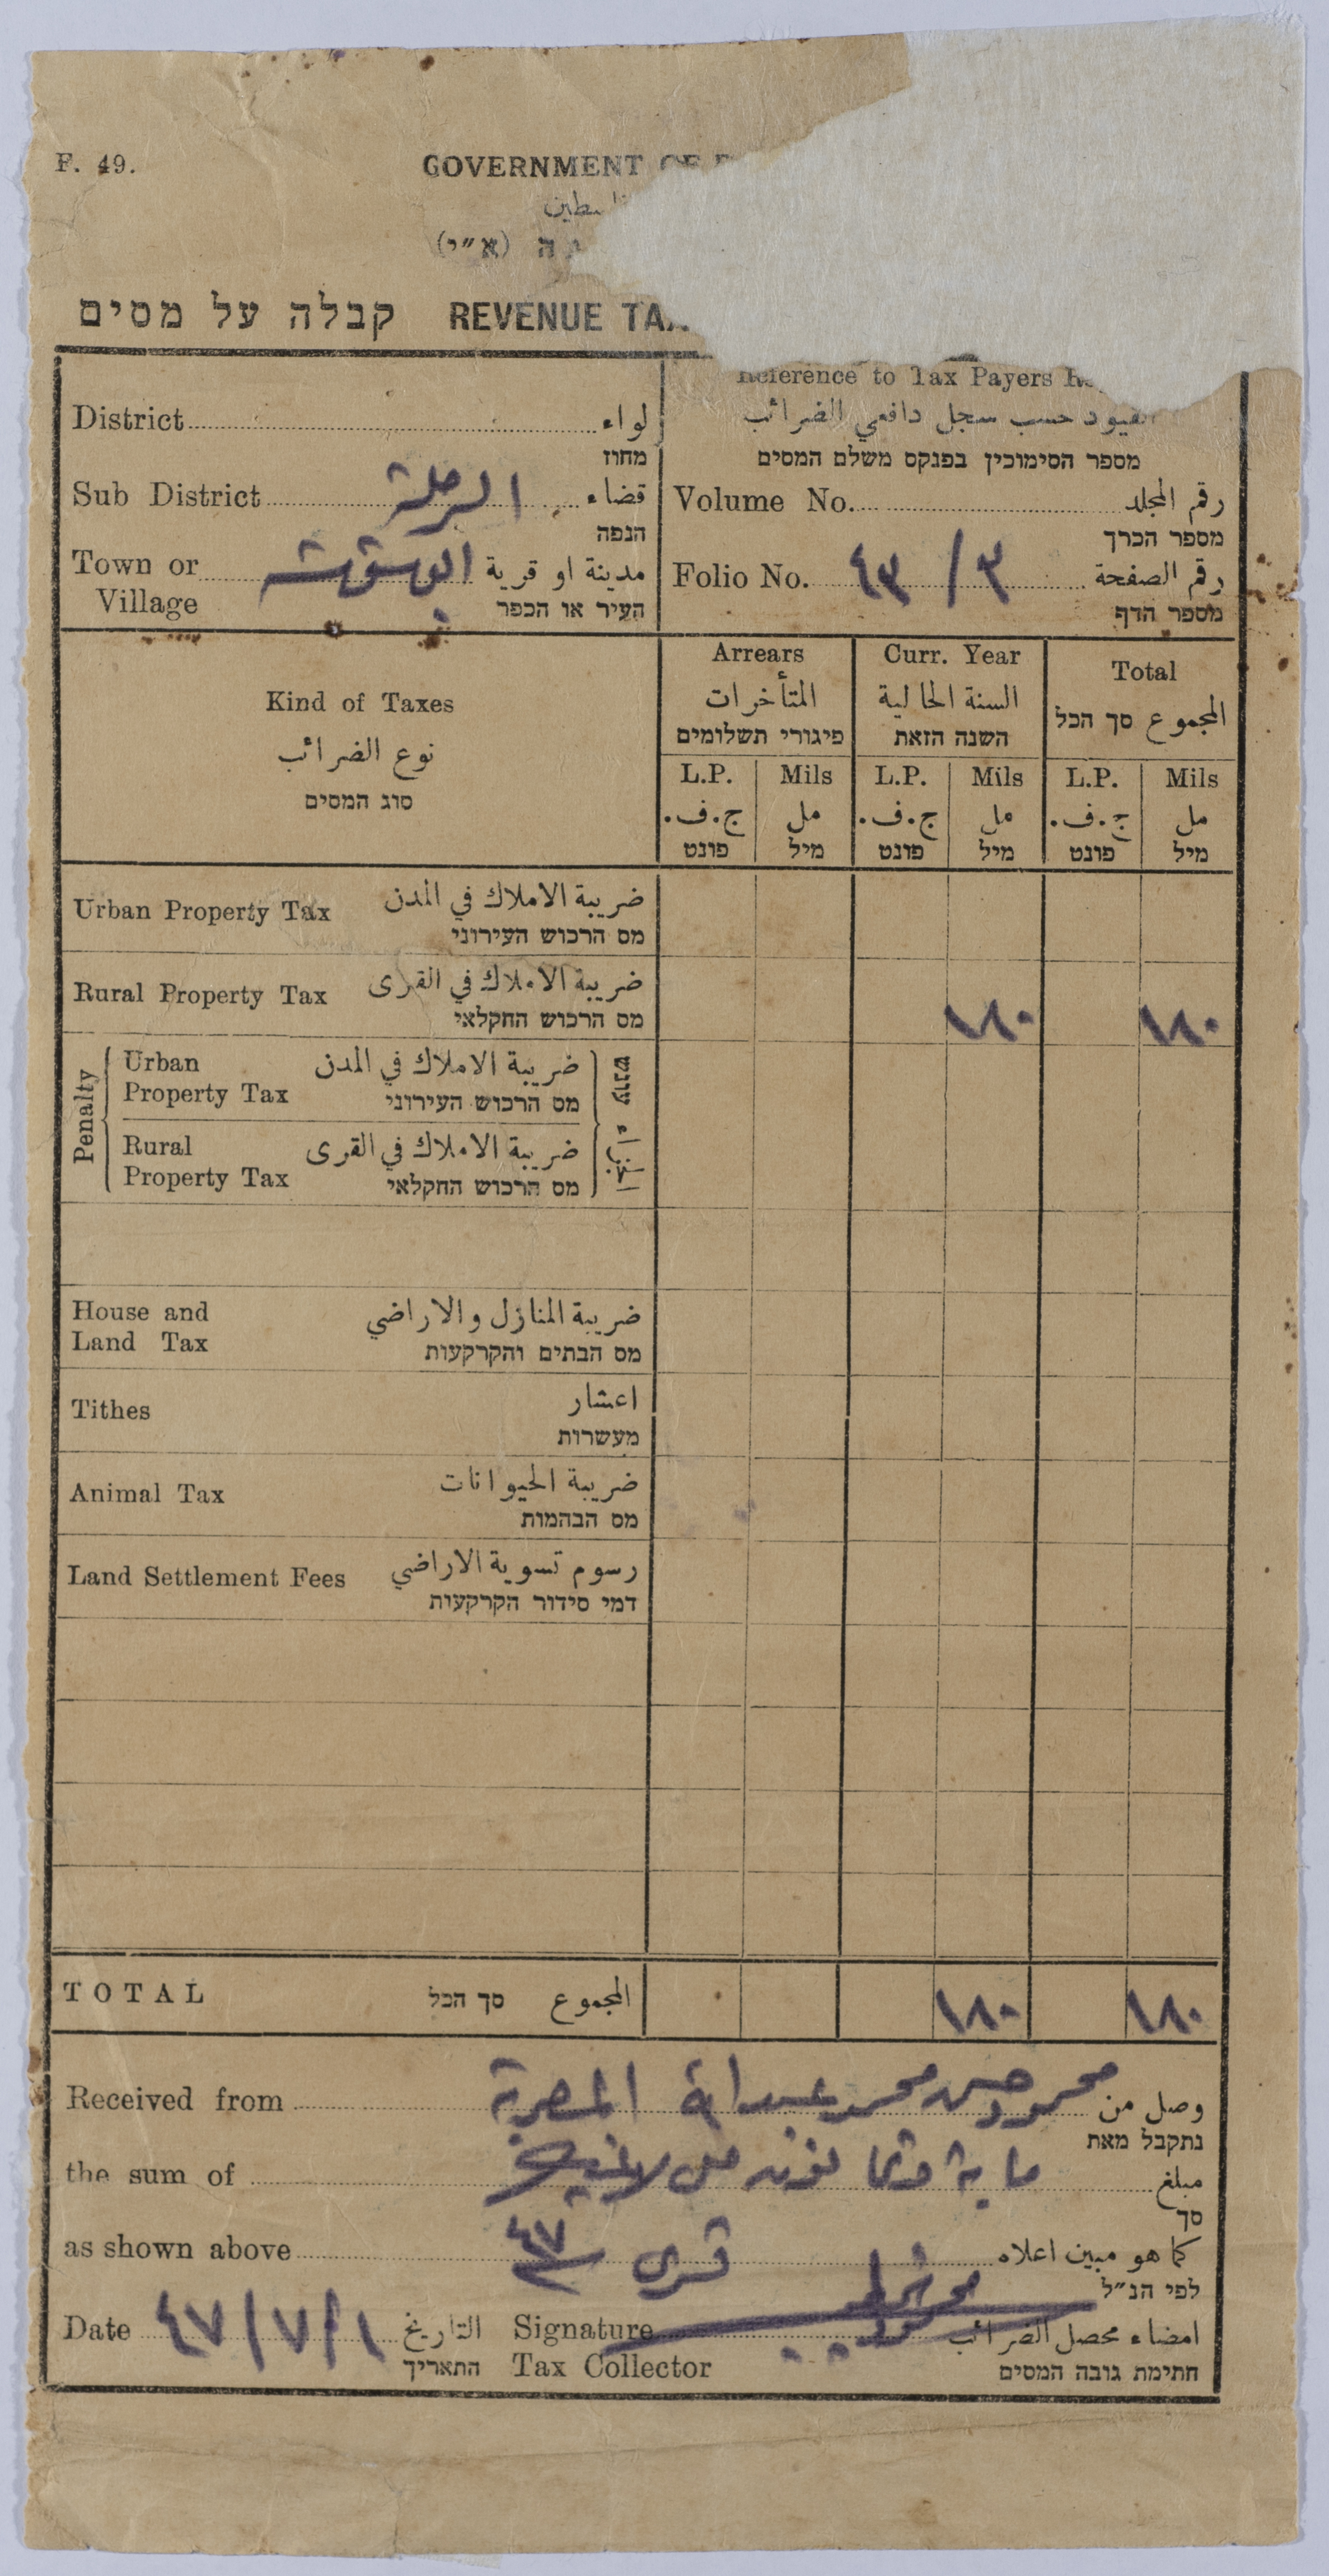 F. 49.
GOVERNMENT OF
فلسطين
(א״י)
REVENUE TAX קבלה על מסים
Reference to Tax Payers
القيود حسب سجل دافعي الضرائب
מספר הסימוכין בפנקס משלם המסים
District لواء
מחוז
Sub District الرملة قضاء
הנפה
Town or Village مدينة او قرية
העיר או הכפר
Volume No. رقم المجلد
מספר הכרך
Folio No. ٤٣ / ٣ رقم الصفحة
מספר הדף
Kind of Taxes
نوع الضرائب
סוג המסים
Arrears
المتأخرات
פיגורי תשלומים
Curr. Year
السنة الحالية
השנה הזאת
Total
المجموع סך הכל
L.P. Mils L.P. Mils L.P. Mils
ج.ف. مل ج.ف. مل ج.ف. مل
פונט מיל פונט מיל פונט מיל
Urban Property Tax ضريبة الاملاك في المدن
מס הרכוש העירוני
Rural Property Tax ضريبة الاملاك في القرى
מס הרכוש החקלאי
١٨٠ ١٨٠
Penalty עונש الجزاء
Urban Property Tax ضريبة الاملاك في المدن
מס הרכוש העירוני
Rural Property Tax ضريبة الاملاك في القرى
מס הרכוש החקלאי
House and Land Tax ضريبة المنازل والاراضي
מס הבתים והקרקעות
Tithes اعشار
מעשרות
Animal Tax ضريبة الحيوانات
מס הבהמות
Land Settlement Fees رسوم تسوية الاراضي
דמי סידור הקרקעות
TOTAL סך הכל المجموع ١٨٠ ١٨٠
Received from محمود حسن محمد عبد وصل من
נתקבל מאת
the sum of ماية وثمانون مل لاغير مبلغ
סך
as shown above قرى ٤٧ كما هو مبين اعلاه
לפי הנ״ל
Date ٤٧/٧/١ التاريخ
התאריך
Signature امضاء محصل الضرائب
Tax Collector חתימת גובה המסים